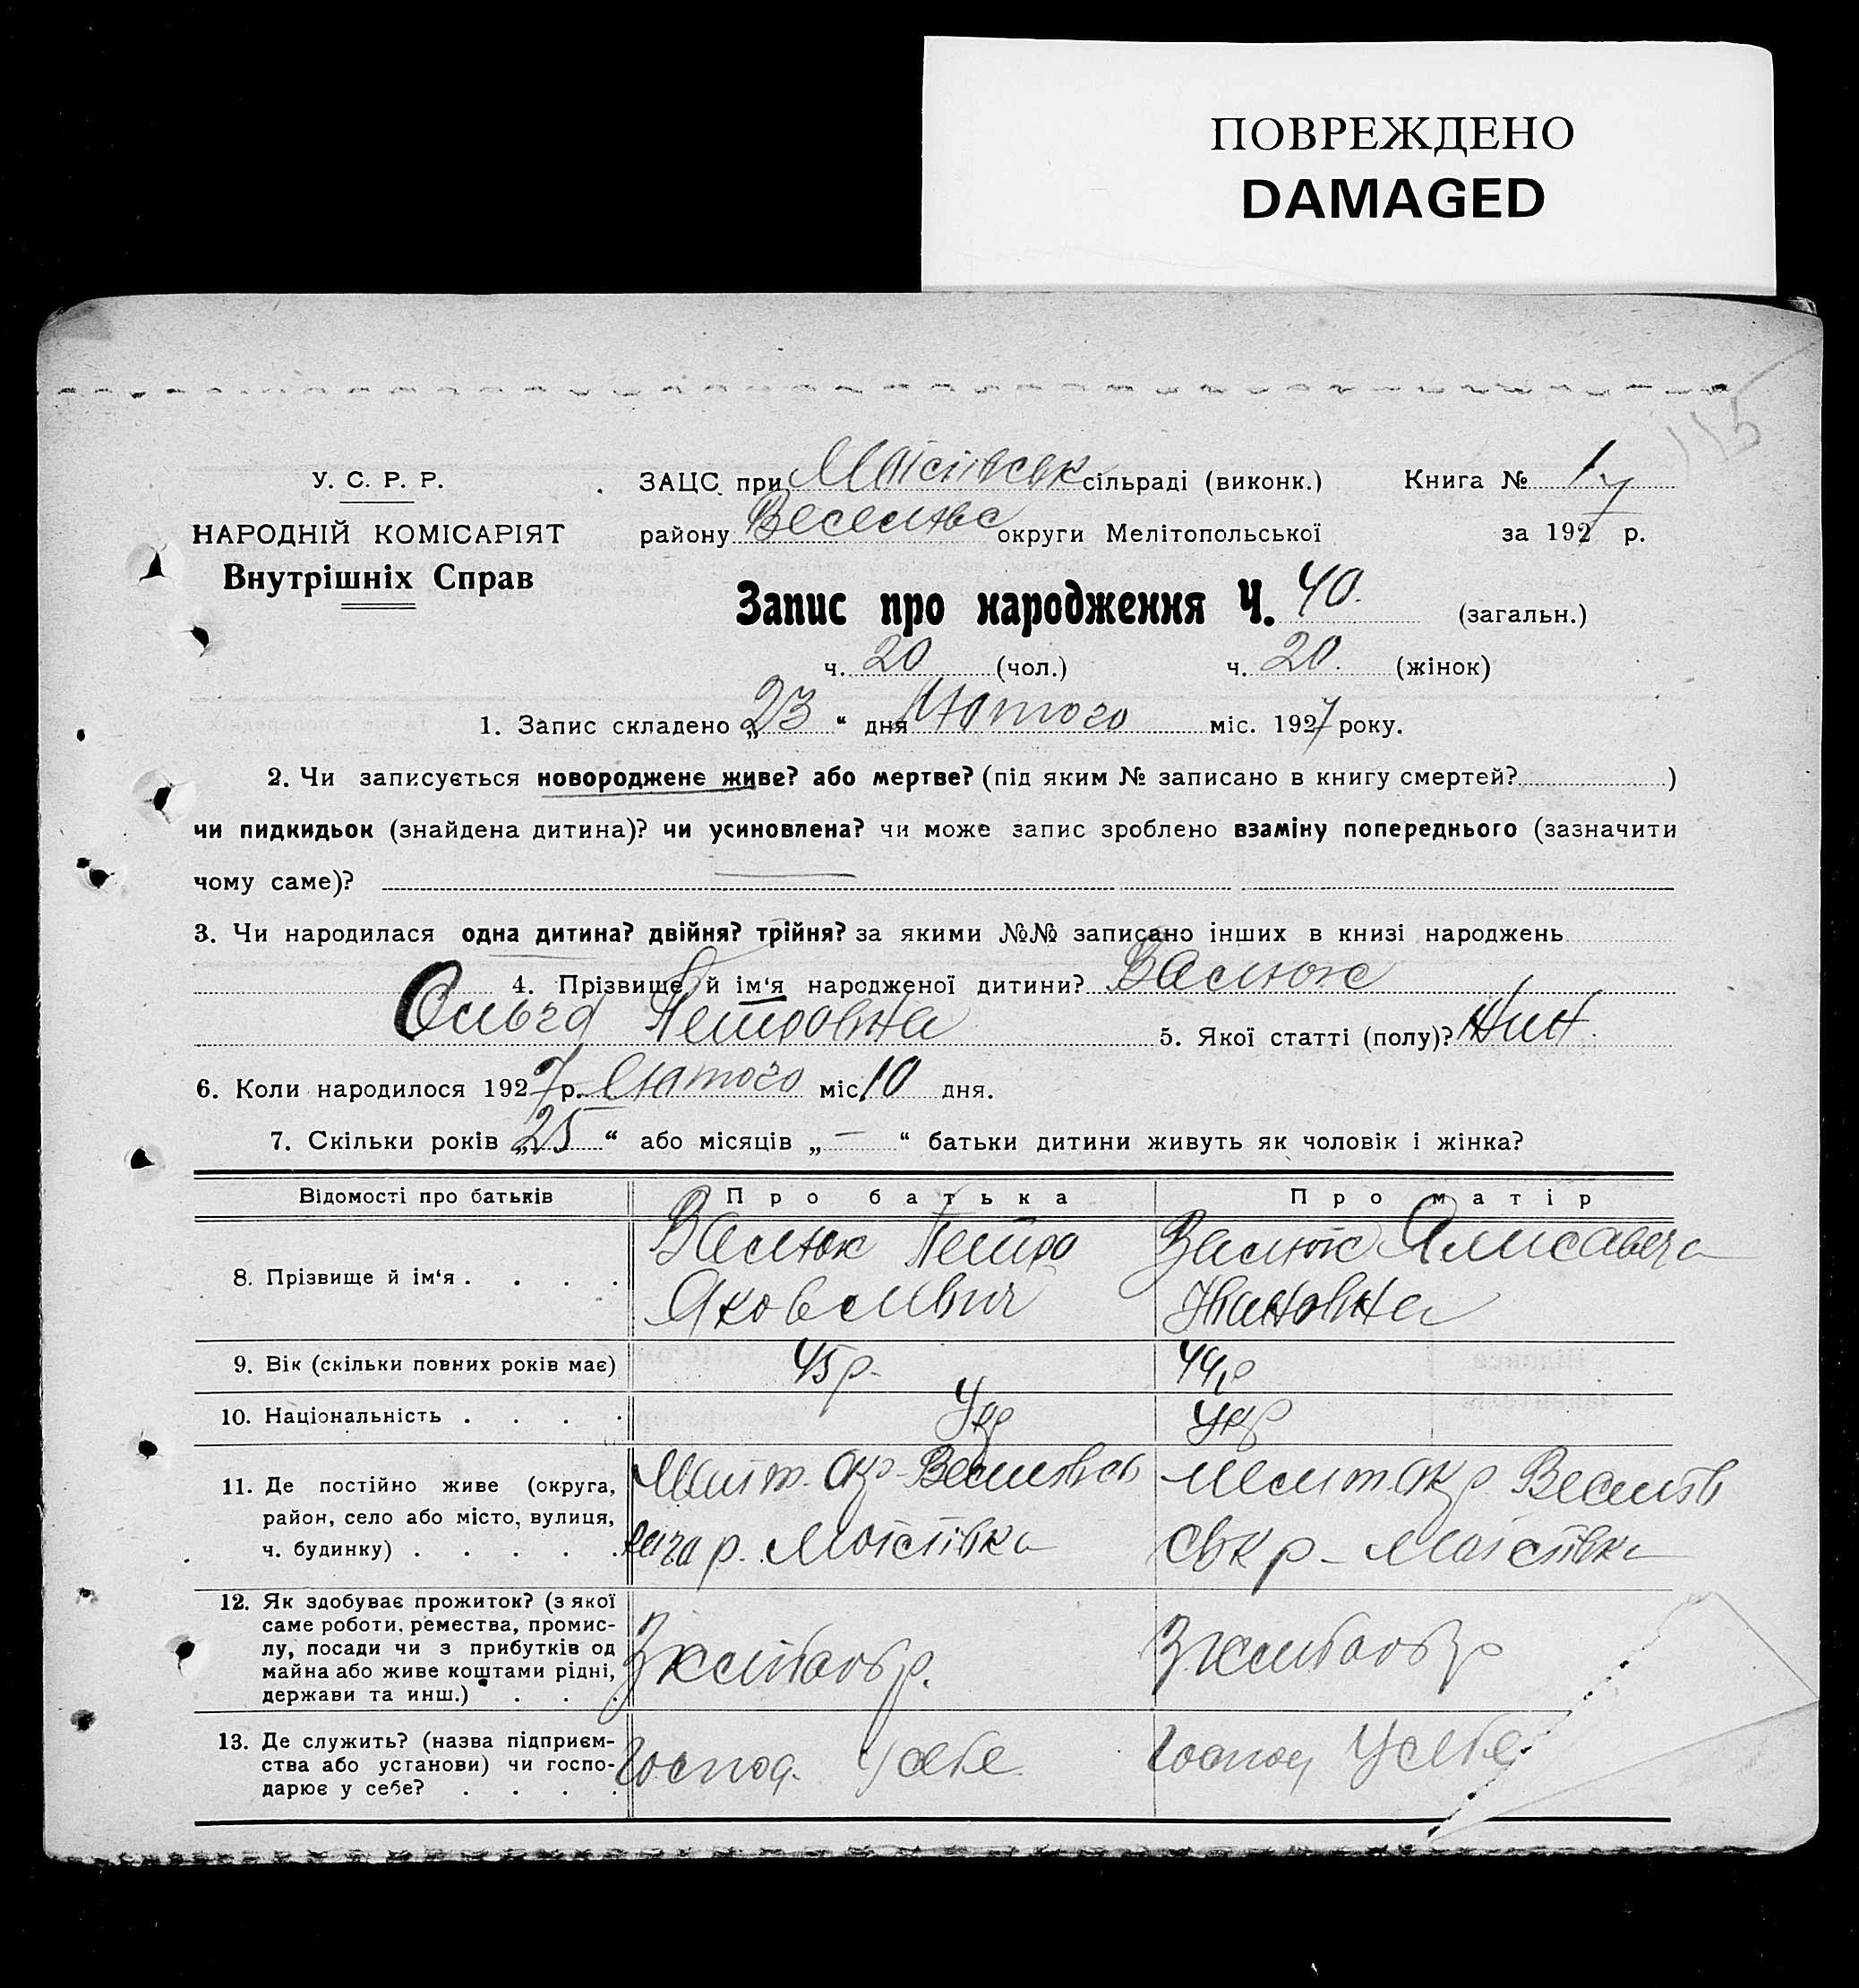 ПОВРЕЖДЕНО
DAMAGED
115
У. С. Р. Р.
НАРОДНІЙ КОМІСАРІЯТ
Внутрішніх Справ
ЗАЦС при Моісіївськ сільраді (виконк.) Книга № 1
району Веселівс округи Мелітопольської за 1927 р.
Запис про народження Ч. 40. (загальн.)
ч. 20 (чол.) ч. 20. (жінок)
1. Запис складено „23“ дня Лютого міс. 1927 року.
2. Чи записується новороджене живе? або мертве? (під яким № записано в книгу смертей? )
чи пидкидьок (знайдена дитина)? чи усиновлена? чи може запис зроблено взаміну попереднього (зазначити
чому саме)?
3. Чи народилася одна дитина? двійня? трійня? за якими №№ записано інших в книзі народжень
4. Прізвище й ім‘я народженої дитини? Валюк
Ольга Петровна 5. Якої статті (полу)? Жин.
6. Коли народилося 1927 р. Лютого міс. 10 дня.
7. Скільки років „25“ або місяців „—“ батьки дитини живуть як чоловік і жінка?
Відомості про батьків Про батька Про матір
8. Прізвище й ім‘я . . . . Валюк Петро Валюк
Яковлевич Ивановна
9. Вік (скільки повних років має) 45 р. 44 р
10. Національність . . . . Укр Укр
11. Де постійно живе (округа, район, село або місто, вулиця, ч. будинку) . . . . . Меліт. окр. Мелит. окр.
р. Моісіївка р- Моісіївка
12. Як здобуває прожиток? (з якої саме роботи, ремества, промислу, посади чи з прибутків од майна або живе коштами рідні, держави та инш.) . . . З хлібообр. З хлібообр
13. Де служить? (назва підприємства або установи) чи господарює у себе? . . . . Господ. У себе Господ У себе